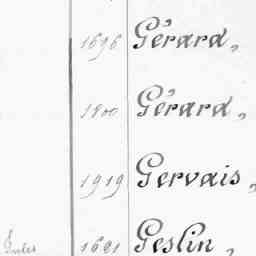 1696 Gérard,
1800 Gérard,
1919 Gervais,
Jules 1621 Geslin,